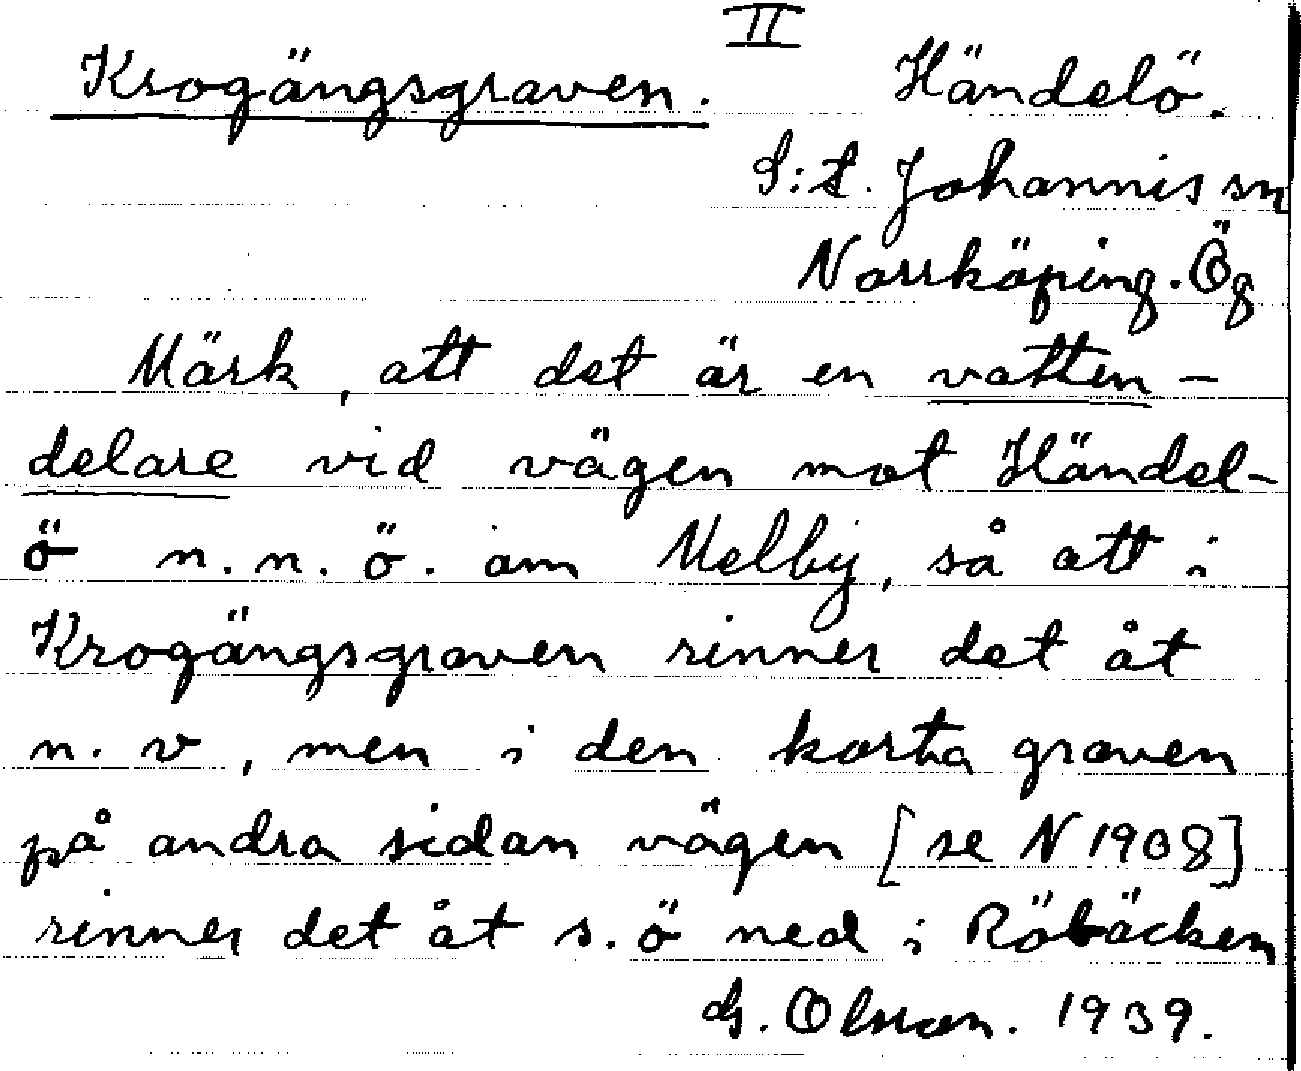 II
Krogängsgraven. Händelö.
S:t. Johannis sn
Norrköping. Ög
Märk, att det är en vatten-
delare vid vägen mot Händel-
ö n.n.ö. om Melby, så att i
Krogängsgraven rinner det åt
n.v, men i den korta graven
på andra sidan vägen [se N 1908]
rinner det åt s.ö ned i Röbäcken
G. Olsson. 1939.